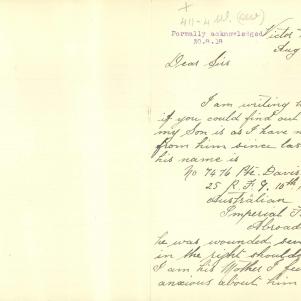 Formally acknowledged
30.9.18
Victor
Aug
Dear Sir
I am writing to
if you could find out
my Son is as I have n
from him since last
his name is
No 7476 Pte. Davis
25 R. F. J. 10th
Australian
Imperial F
Abroad
he was wounded seve
in the right should
I am his Mother I fee
anxious about him